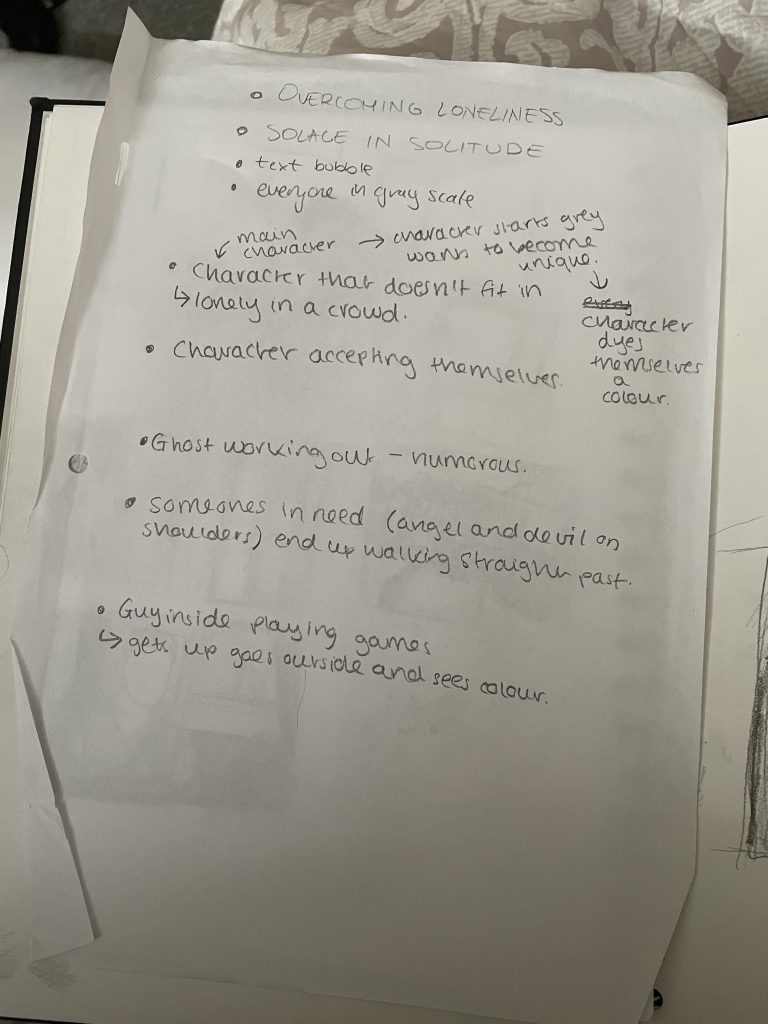 • OVERCOMING LONELINESS
• SOLACE IN SOLITUDE
• text bubble
• everyone in gray scale
↙ main character → character starts grey
wants to become
unique.
↓
every
character
dyes
themselves
a
colour.
• Character that doesn't fit in
↳ lonely in a crowd.
• Character accepting themselves.
• Ghost working out – numorous.
• Someones in need (angel and devil on
shoulders) end up walking straight past.
• Guy inside playing games
↳ gets up goes outside and sees colour.